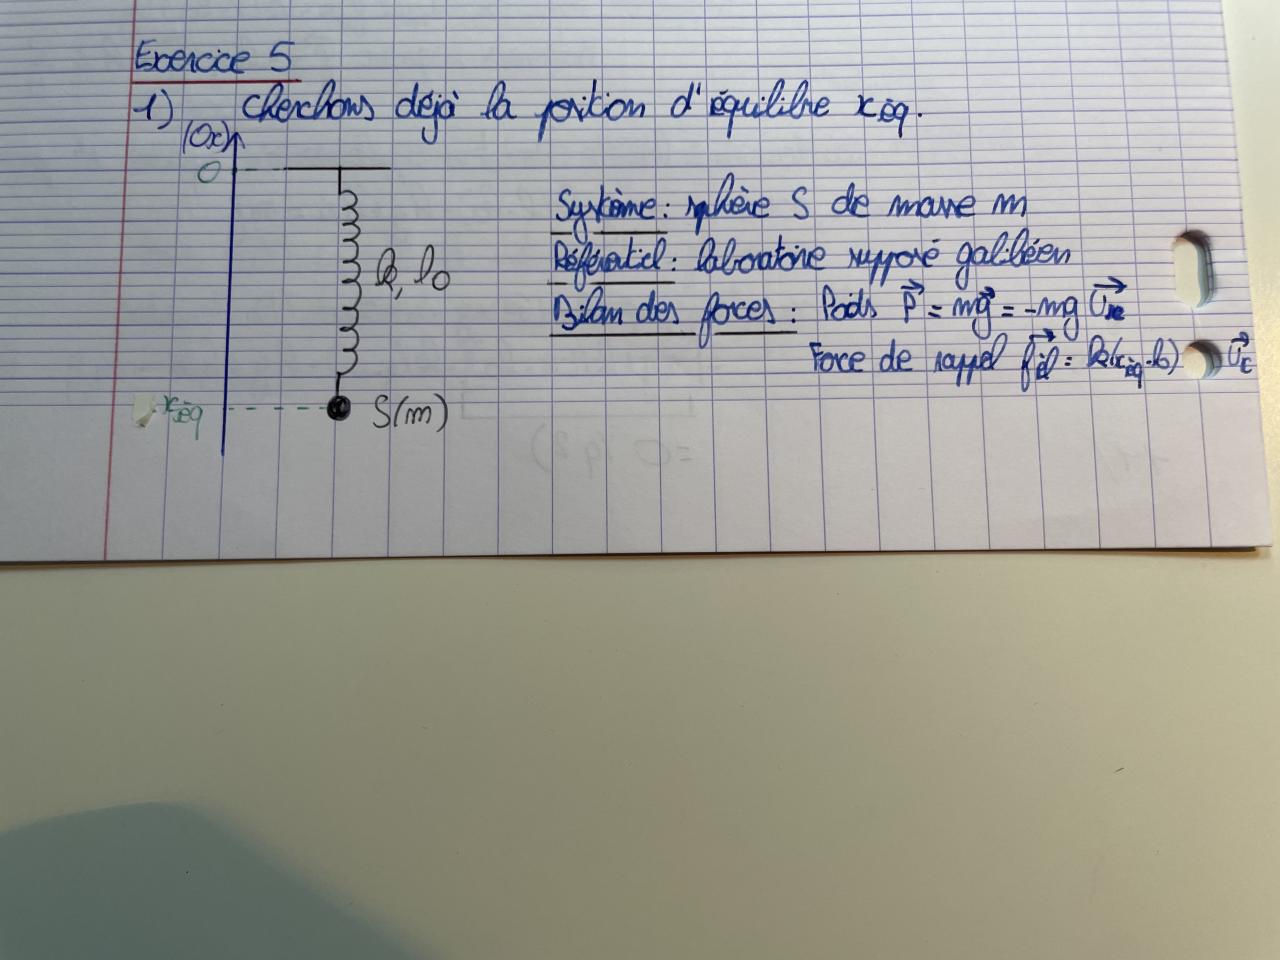 Exercice 5
1) Cherchons déjà la position d'équilibre xéq.
(Ox)
O
Système: sphère S de masse m
k, l0
Référentiel: laboratoire supposé galiléen
Bilan des forces: Poids P⃗ = mg⃗ = -mg U⃗x
Force de rappel f⃗él = k(xéq-l0) U⃗x
xéq
S(m)